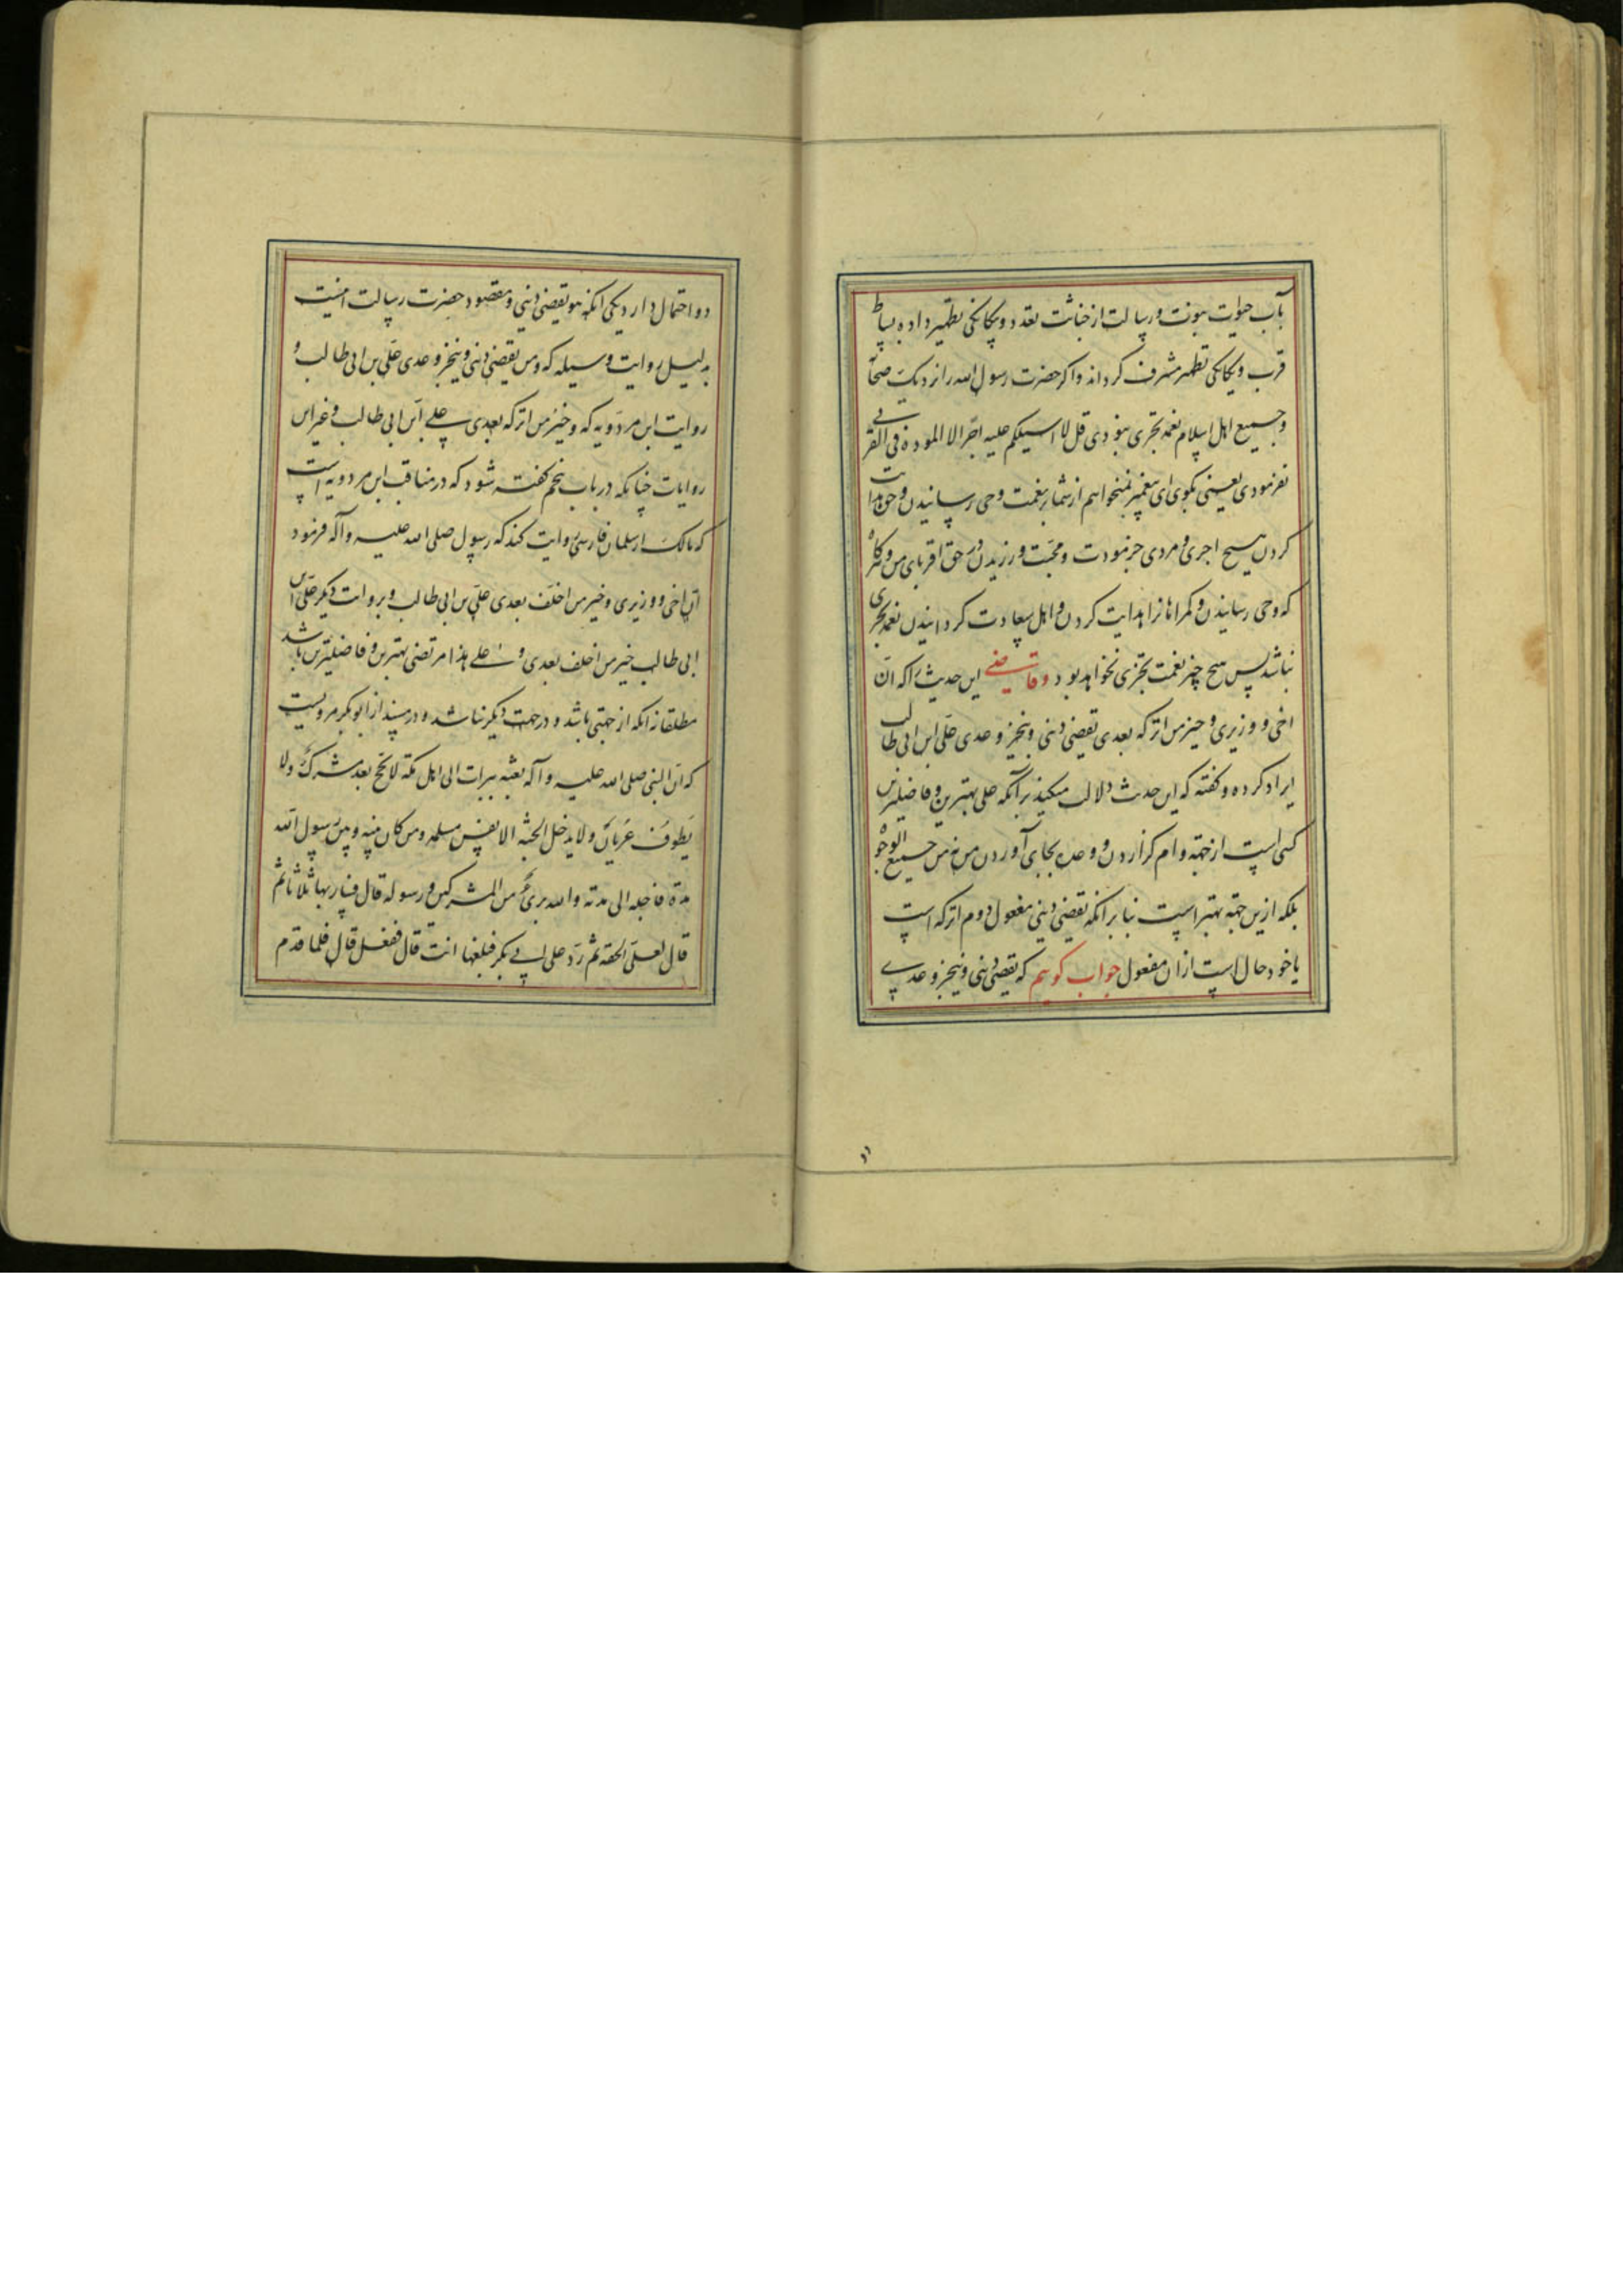 بآب حیوات نبوت و رسالت از خباثت تعدد و بیکانکی تطهیر داده بساط
قرب و یکانکی تطهیر مشرف کرداند و اکر حضرت رسول الله را نزدیک صحا
و جمیع اهل اسلام نعمة تجزی نبودی قل لا اسیلکم علیه اجرا الا المودة فی القربی
نفرمودی یعنی بکوی ای پیغمبر نمیخواهم از شما بر نعمت وحی رسانیدن و حق هدایت
کردن هیچ اجری و مردی جز مودت و محبت ورزیدن در حق اقربای من و کاه
که وحی رسانیدن و کمراهانرا هدایت کردن و اهل سعادت کردانیدن نعمة تجزی
نباشد پس هیچ چیز نعمت تجزی نخواهد بود و قاضی این حدیث را که ان
اخی و وزیری و خیر من اترکه بعدی یقضی دینی و ینجز وعدی علی ابن ابی طالب
ایراد کرده و کفته که این حدیث دلالت میکند بر آنکه علی بهترین و فاضلترین
کسی است از جهة وام کزاردن و وعده بجای آوردن من نه من جمیع الوجوه
بلکه ازین جهة بهتر است بنا بر انکه یقضی دینی مفعول دوم اترکه است
یا خود حال است از ان مفعول جواب کوییم که یقضی دینی و ینجز وعدی
دو احتمال دارد یکی انکه هو یقضی دینی و مقصود حضرت رسالت اینست
بدلیل روایت وسیله که و من یقضی دینی و ینجز وعدی علی بن ابی طالب و
روایت ابن مردویه که و خیر من اترکه بعدی علی ابن ابی طالب و غیر این
روایات چنانکه در باب پنجم کفته شود که در مناقب ابن مردویه است
که مالک از سلمان فارسی روایت کند که رسول صلی الله علیه و آله فرمود
ان اخی و وزیری و خیر من اخلف بعدی علی بن ابی طالب و بروایت دیکر علی بن
ابی طالب خیر من اخلف بعدی و علی هذا مرتضی بهترین و فاضلترین باشد
مطلقا نه انکه از جهتی باشد و در جهت دیکر نباشد و در مسند از ابو بکر مرویست
که ان النبی صلی الله علیه و آله بعثه ببرات الی اهل مکة لا یحج بعد مشرک ولا
یطوف عریان ولا یدخل الجنة الا نفس مسلمة و من کان بینه و بین رسول الله
مدة فاجله الی مدته والله بریء من المشرکین و رسوله قال فسار بها ثلاثا ثم
قال لعلی الحقه ثم رد علی ابی بکر فبلغها انت قال ففعل قال فلما قدم